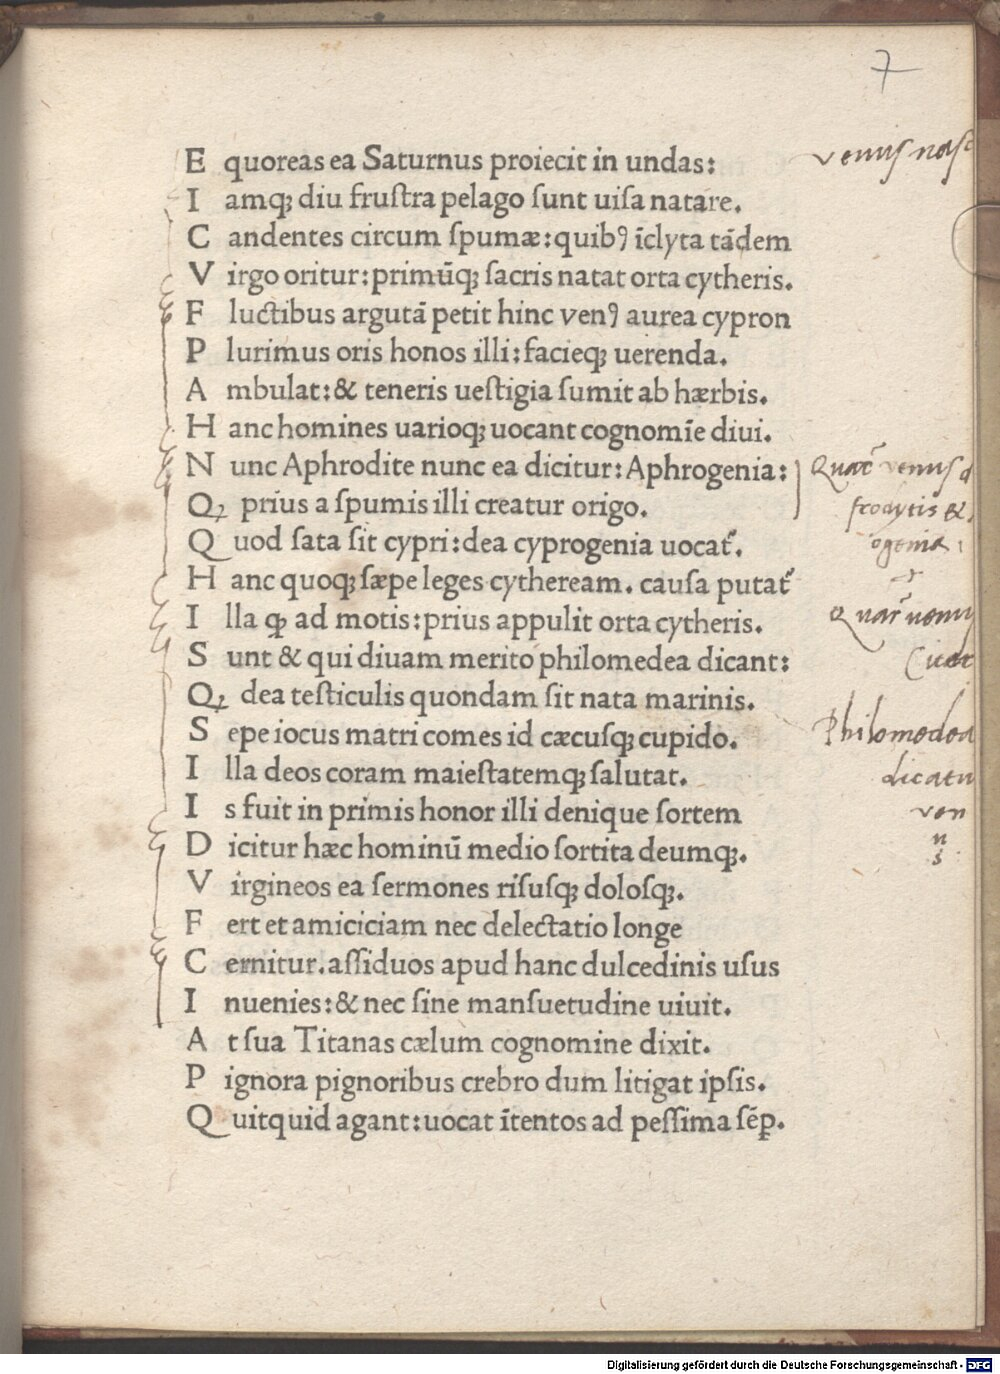 7
E quoreas ea Saturnus proiecit in undas:
I amqꝫ diu fruſtra pelago ſunt uiſa natare.
C andentes circum ſpumæ: quibꝰ īclyta tādem
V irgo oritur: primūqꝫ ſacris natat orta cytheris.
F luctibus argutā petit hinc venꝰ aurea cypron
P lurimus oris honos illi: facieqꝫ uerenda.
A mbulat: & teneris ueſtigia ſumit ab hærbis.
H anc homines uarioqꝫ uocant cognomīe diui.
N unc Aphrodite nunc ea dicitur: Aphrogenia:
Qꝫ prius a ſpumis illi creatur origo.
Q uod ſata ſit cypri: dea cyprogenia uocat᷑.
H anc quoqꝫ ſæpe leges cytheream. cauſa putat᷑
I lla ꝙ ad motis: prius appulit orta cytheris.
S unt & qui diuam merito philomedea dicant:
Qꝫ dea teſticulis quondam ſit nata marinis.
S epe iocus matri comes id cæcuſqꝫ cupido.
I lla deos coram maieſtatemqꝫ ſalutat.
I s fuit in primis honor illi denique ſortem
D icitur hæc hominū medio ſortita deumqꝫ.
V irgineos ea ſermones riſuſqꝫ doloſqꝫ.
F ert et amiciciam nec delectatio longe
C ernitur. aſſiduos apud hanc dulcedinis uſus
I nuenies: & nec ſine manſuetudine uiuit.
A t ſua Titanas cælum cognomine dixit.
P ignora pignoribus crebro dum litigat ipſis.
Q uitquid agant: uocat ītentos ad peſſima ſēꝑ.
venus naſc
venus d
frodytis &
ogenia
venu
Philomedea
dicatu
ven
u
s
Digitalisierung gefördert durch die Deutsche Forschungsgemeinschaft - DFG